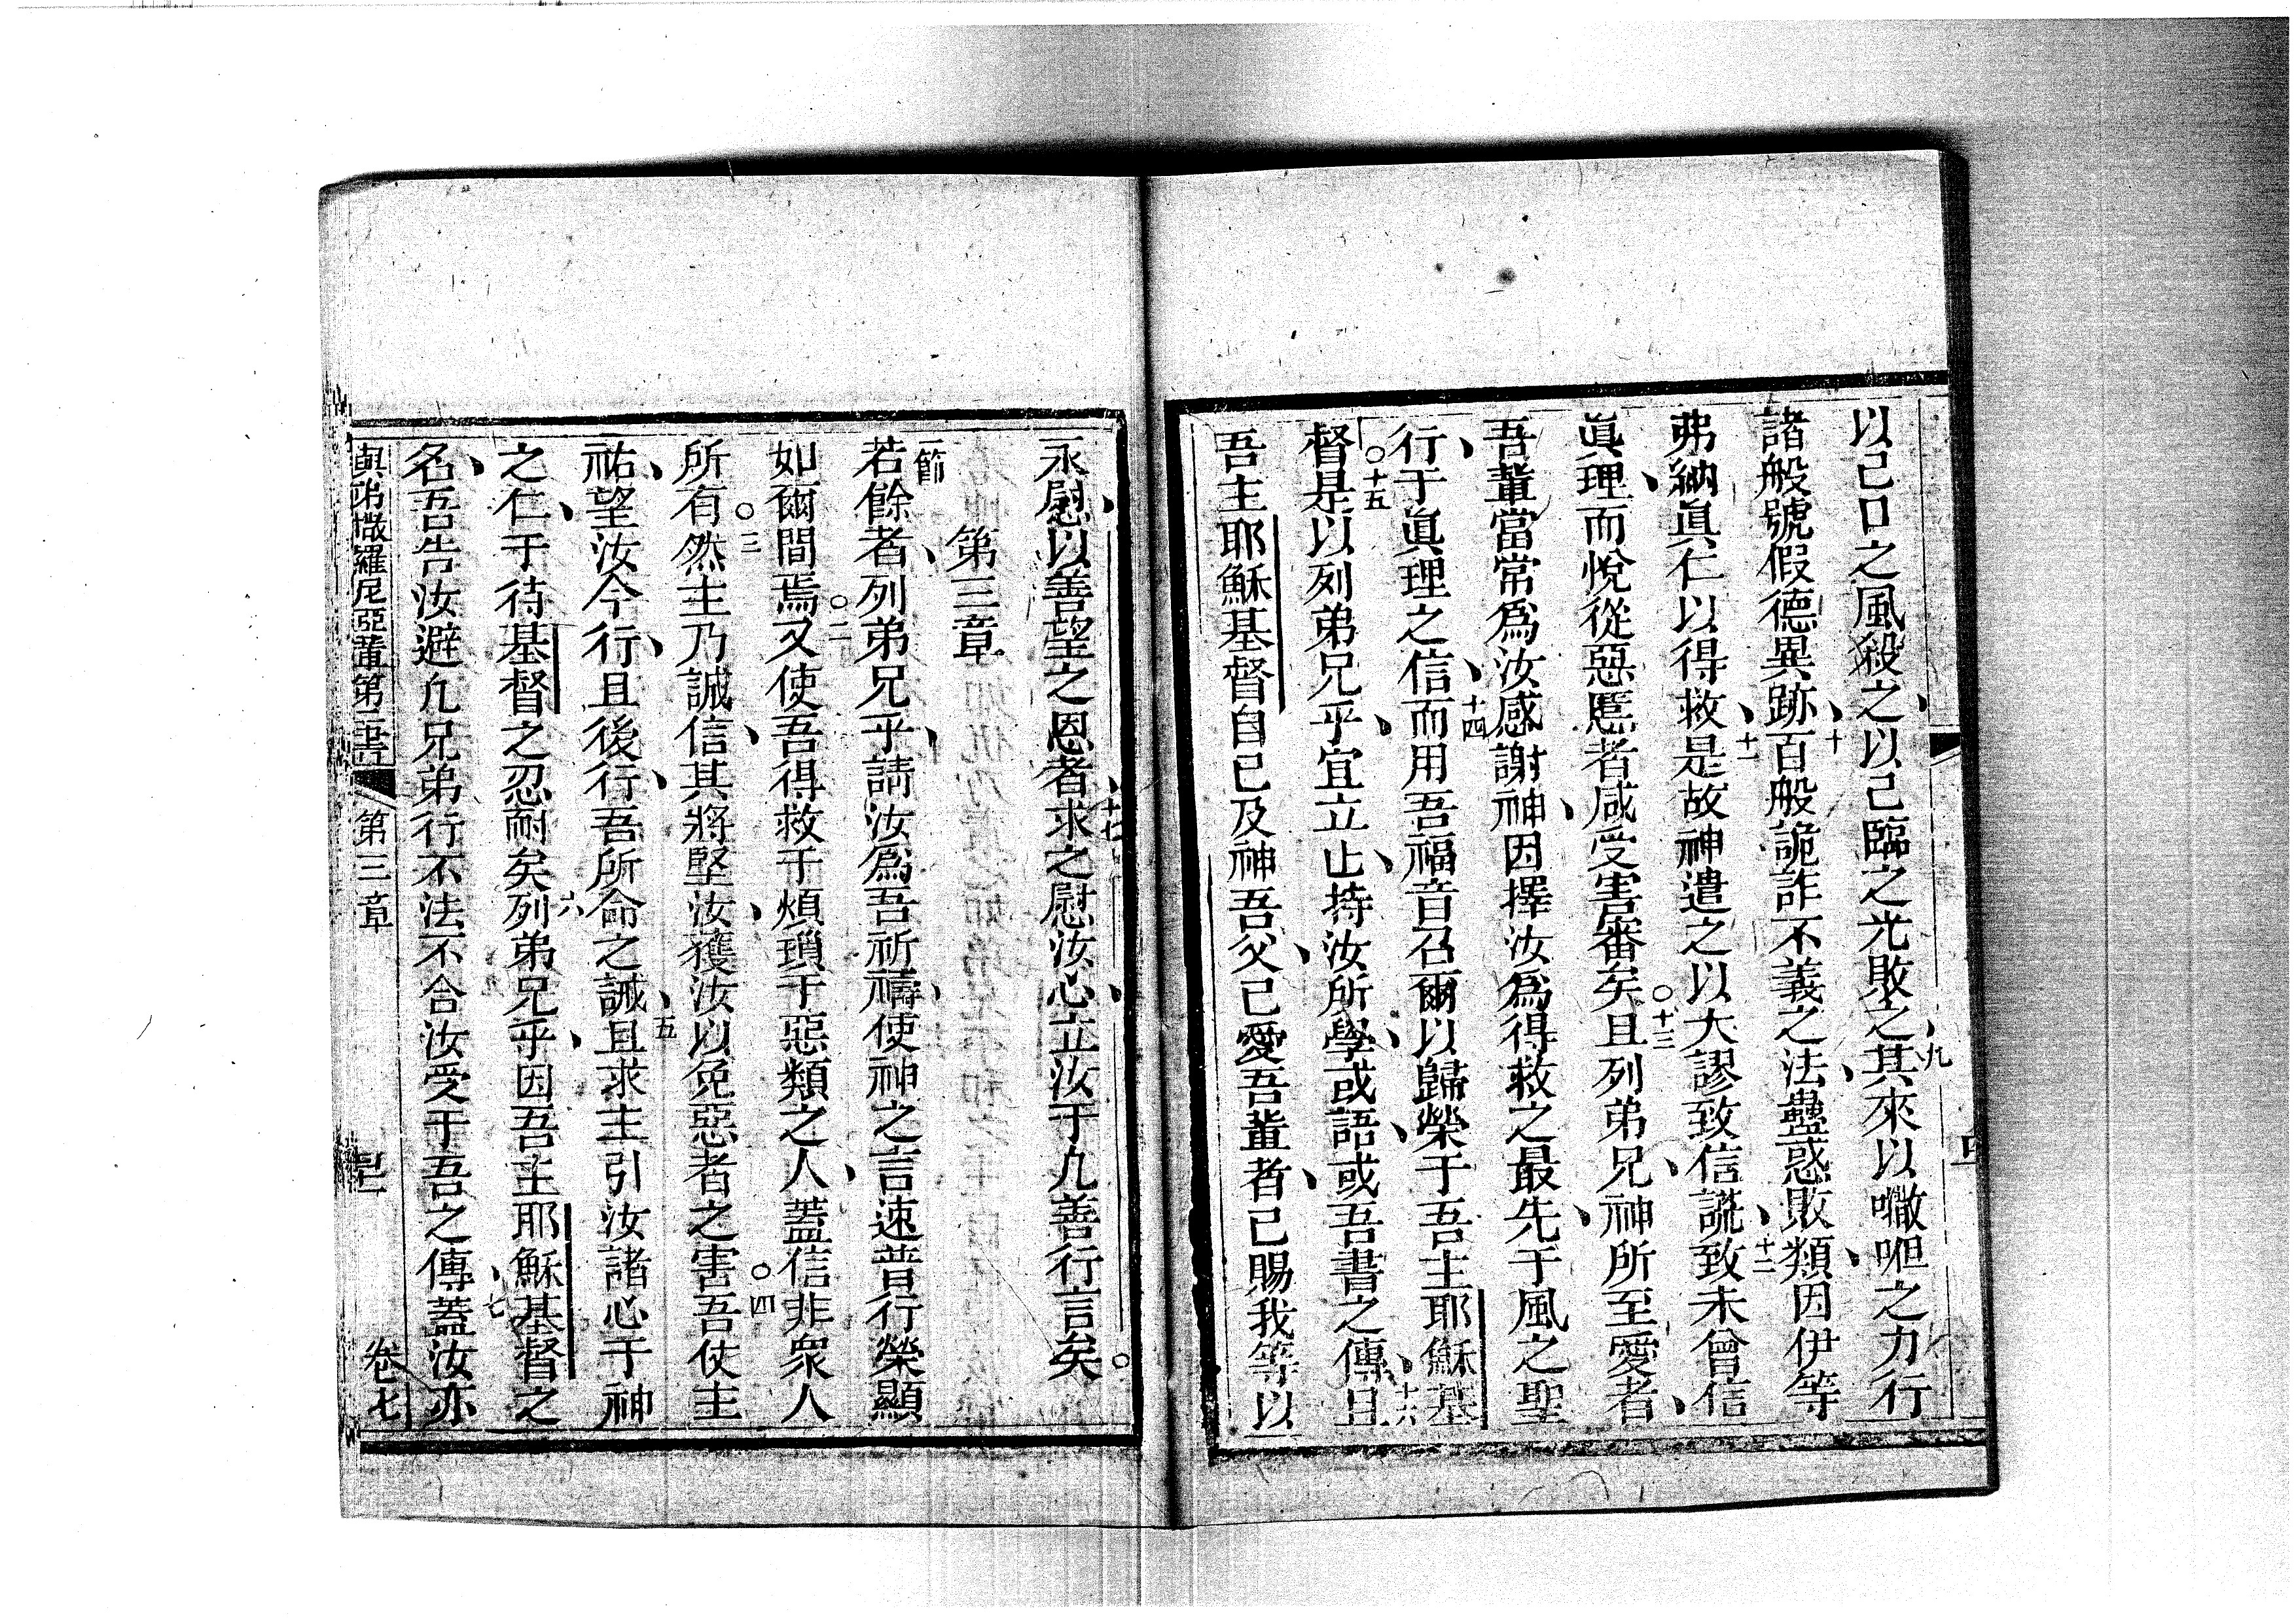 以己口之風殺之以己臨之光敗之九其來以嘞呾之力行
諸般號假德異跡十百般詭詐不義之法蠱惑敗類因伊等
弗納眞仁以得救十一是故神遣之以大謬致信謊十二致未曾信
眞理而悅從惡慝者咸受害審矣○十三且列弟兄神所至愛者
吾輩當常爲汝感謝神因擇汝爲得救之最先于風之聖
行于眞理之信十四而用吾福音召爾以歸榮于吾主耶穌基
督○十五是以列弟兄乎宜立止持汝所學或語或吾書之傳十六且
吾主耶穌基督自己及神吾父己愛吾輩者己賜我等以
永慰以善望之恩者十七求之慰汝心立汝于凢善行言矣○
第三章
一節若餘者列弟兄乎請汝爲吾祈禱使神之言速普行榮顯
如爾間焉○二又使吾得救于煩瑣于惡類之人蓋信非衆人
所有○三然主乃誠信其將堅汝獲汝以免惡者之害○四吾仗主
祐望汝今行且後行吾所命之誡五且求主引汝諸心于神
之仁于待基督之忍耐矣六列弟兄乎因吾主耶穌基督之
名吾告汝避凢兄弟行不法不合汝受于吾之傳七蓋汝亦
與弟撒羅尼亞輩第二書 第三章 卷七